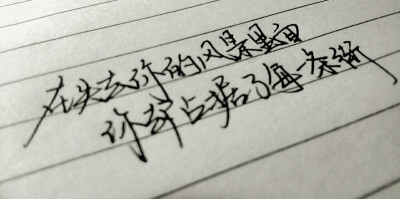 在失去你的风景里面
你却占据了每一条街